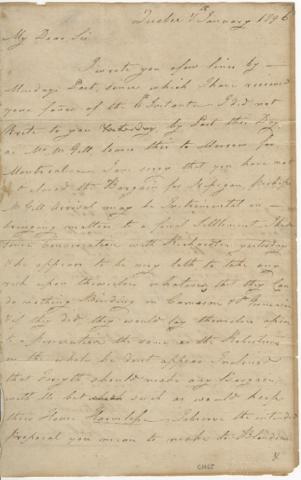 Quebec 7th January 1796
My Dear Sir
I wrote you a few lines by
Mundays Post, since which I have received
your favor of the Instant I did not
Write to you Yesterday by Post this Day
as Mr McGill leaves this to Morrow for
Montreal I am sorry that you have not
closed the Bargain for perhaps
McGill arrival may be Instrumental in
bringing matters to a final Settlement I had
some Conversation with Richardson yesterday
he appears to be very loth to take any
risk upon themselves whatever, that they can
do nothing Binding on &
if they did they would lay themselves open
to a the same as the
on the whole he dont appear Inclined
that Forsyth should make any Bargain
with the but such as would keep
their House Harmless I observe the intended
Proposal you mean to make to
&